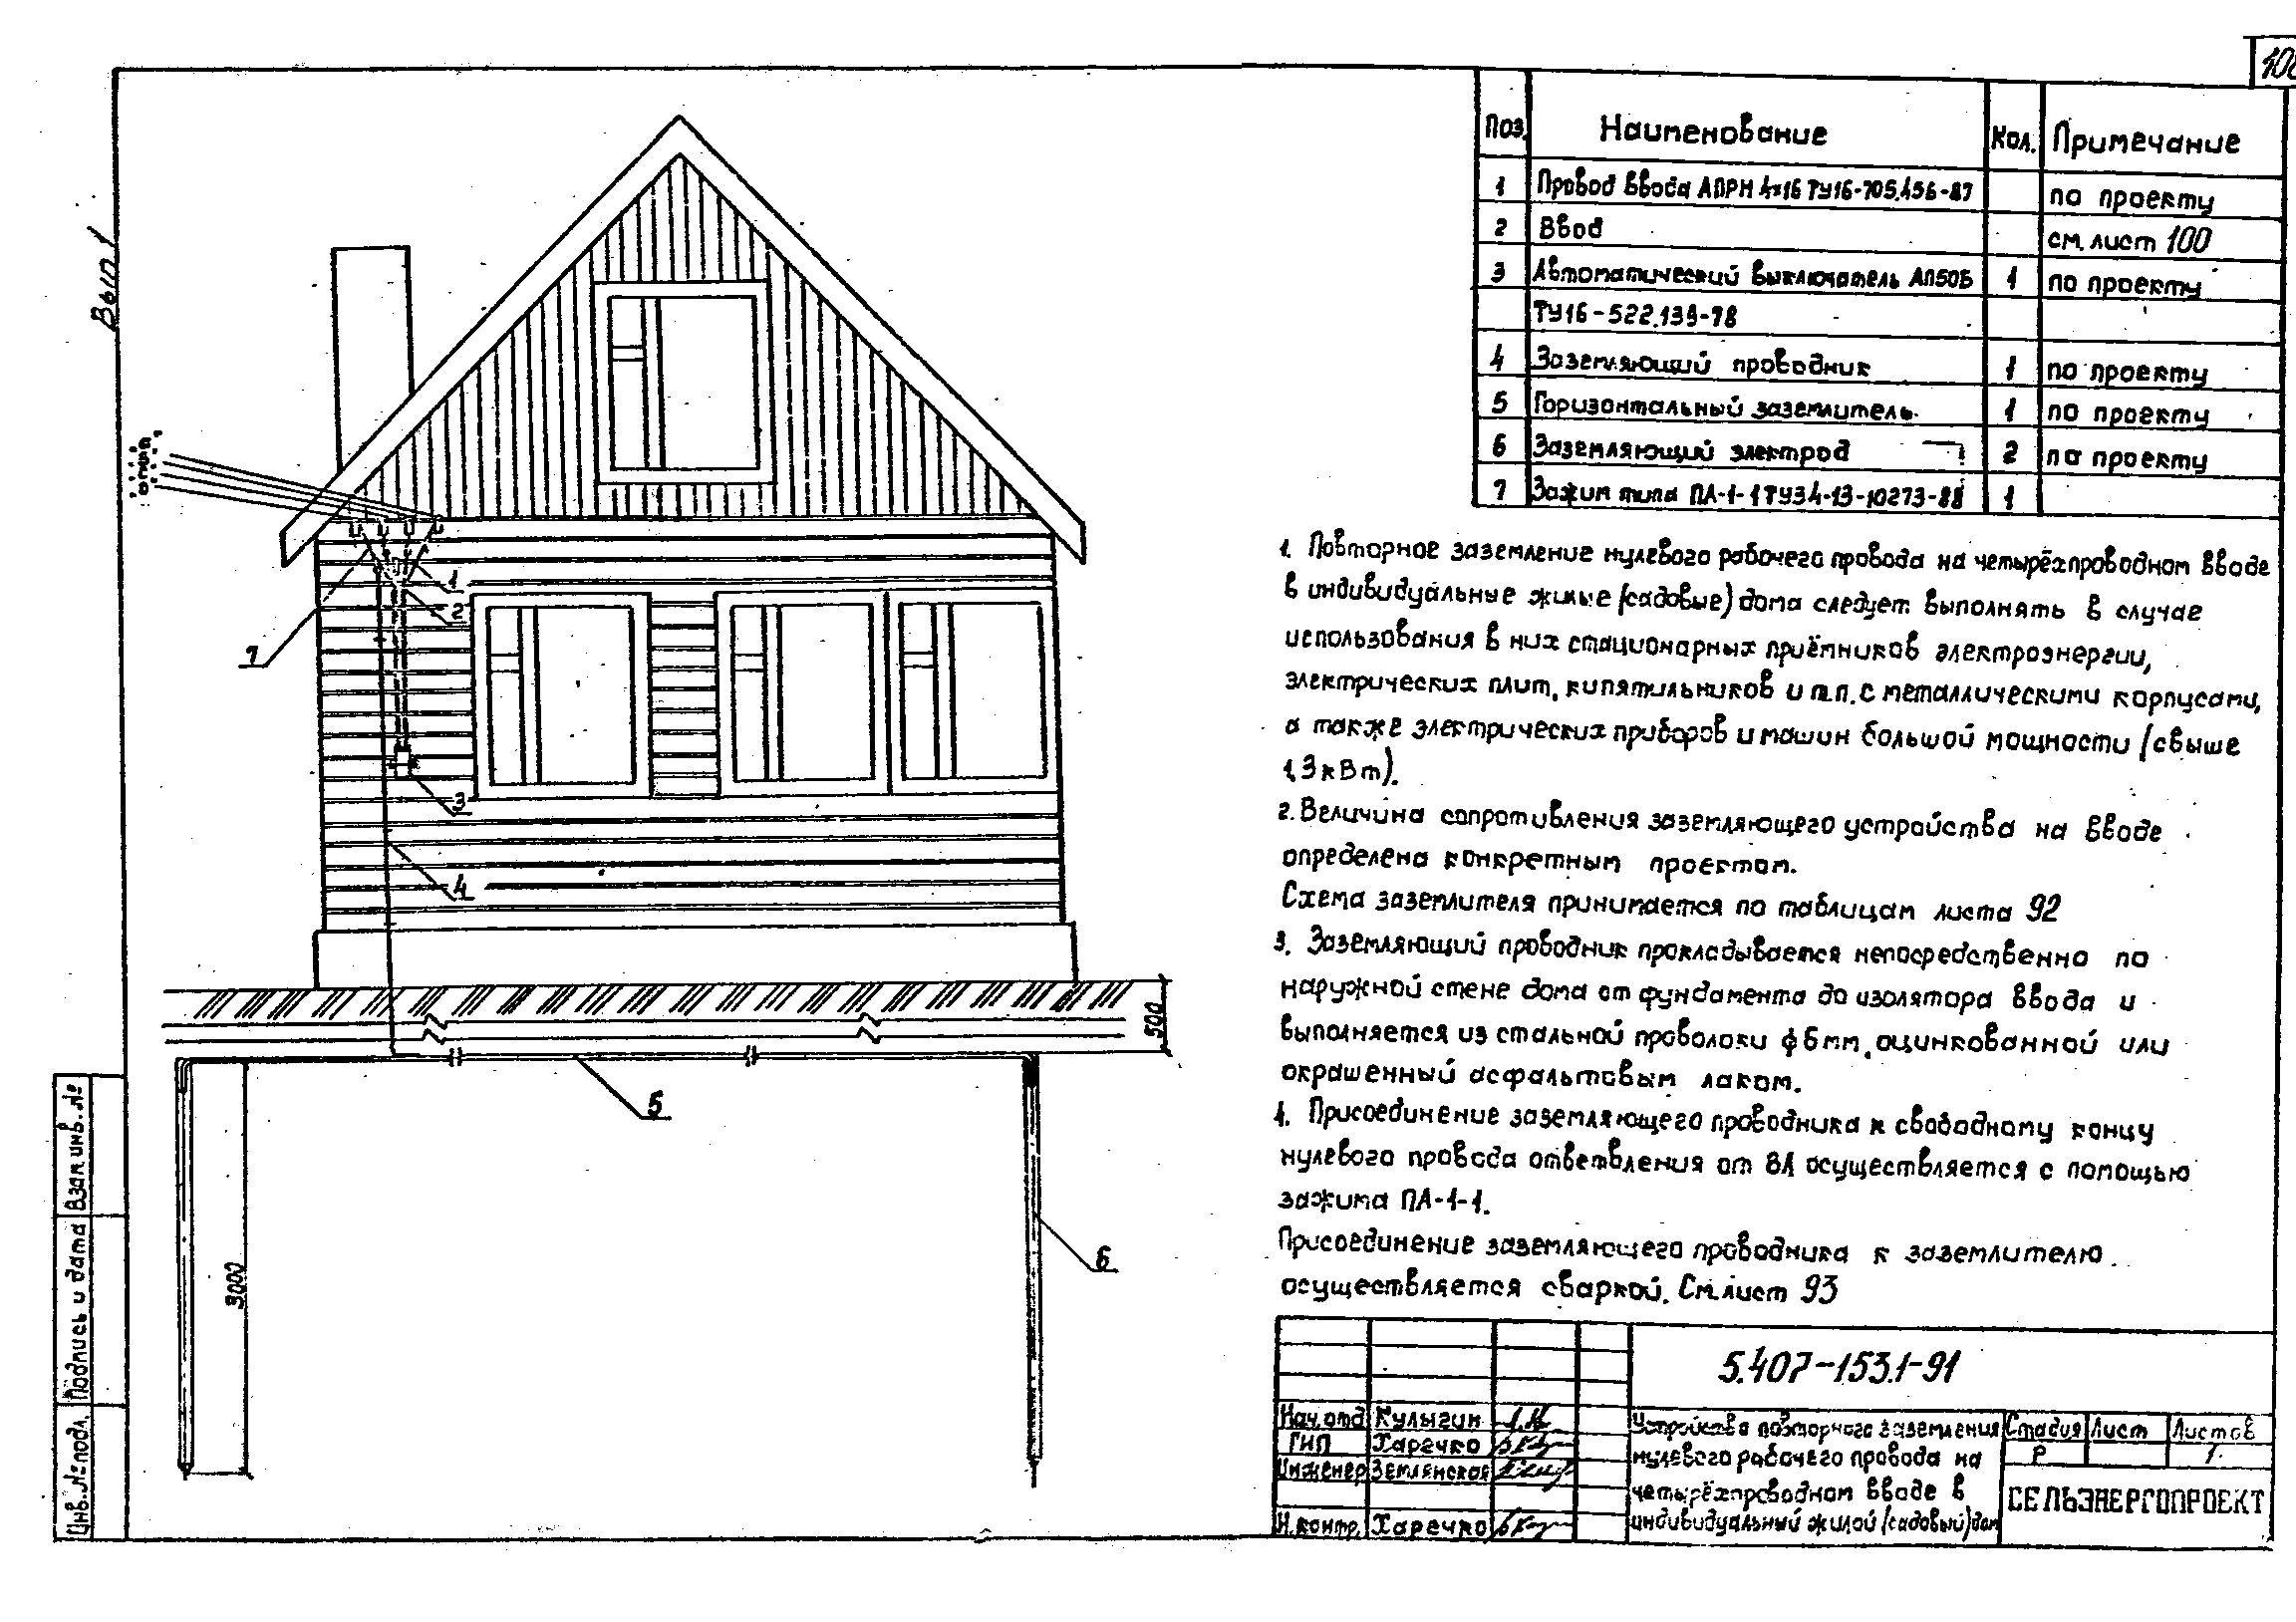 Вып. 1
Поз. Наименование Кол. Примечание
1 Провод ввода АПРН 4×16 ТУ16-705.456-87 по проекту
2 Ввод см. лист 100
3 Автоматический выключатель АП50Б 1 по проекту
ТУ16-522.139-78
4 Заземляющий проводник 1 по проекту
5 Горизонтальный заземлитель 1 по проекту
6 Заземляющий электрод 2 по проекту
7 Зажим типа ПА-1-1 ТУ34-13-10273-88 1
1. Повторное заземление нулевого рабочего провода на четырёхпроводном вводе
в индивидуальные жилые (садовые) дома следует выполнять в случае
использования в них стационарных приёмников электроэнергии,
электрических плит, кипятильников и т.п. с металлическими корпусами,
а также электрических приборов и машин большой мощности (свыше
1,3 кВт).
2. Величина сопротивления заземляющего устройства на вводе
определена конкретным проектом.
Схема заземлителя принимается по таблицам листа 92
3. Заземляющий проводник прокладывается непосредственно по
наружной стене дома от фундамента до изолятора ввода и
выполняется из стальной проволоки ф6мм, оцинкованной или
окрашенный асфальтовым лаком.
4. Присоединение заземляющего проводника к свободному концу
нулевого провода ответвления от ВЛ осуществляется с помощью
зажима ПА-1-1.
Присоединение заземляющего проводника к заземлителю
осуществляется сваркой. См. лист 93
1
2
7
3
4
500
5
3000
6
5.407-153.1-91
Нач. отд Кулыгин
ГИП Харечко
Инженер Землянская
Н. контр. Харечко
Устройства повторного заземления
нулевого рабочего провода на
четырёхпроводном вводе в
индивидуальный жилой (садовый) дом
Стадия Лист Листов
Р 1
СЕЛЬЭНЕРГОПРОЕКТ
Инв. № подл. Подпись и дата Взам. инв. №